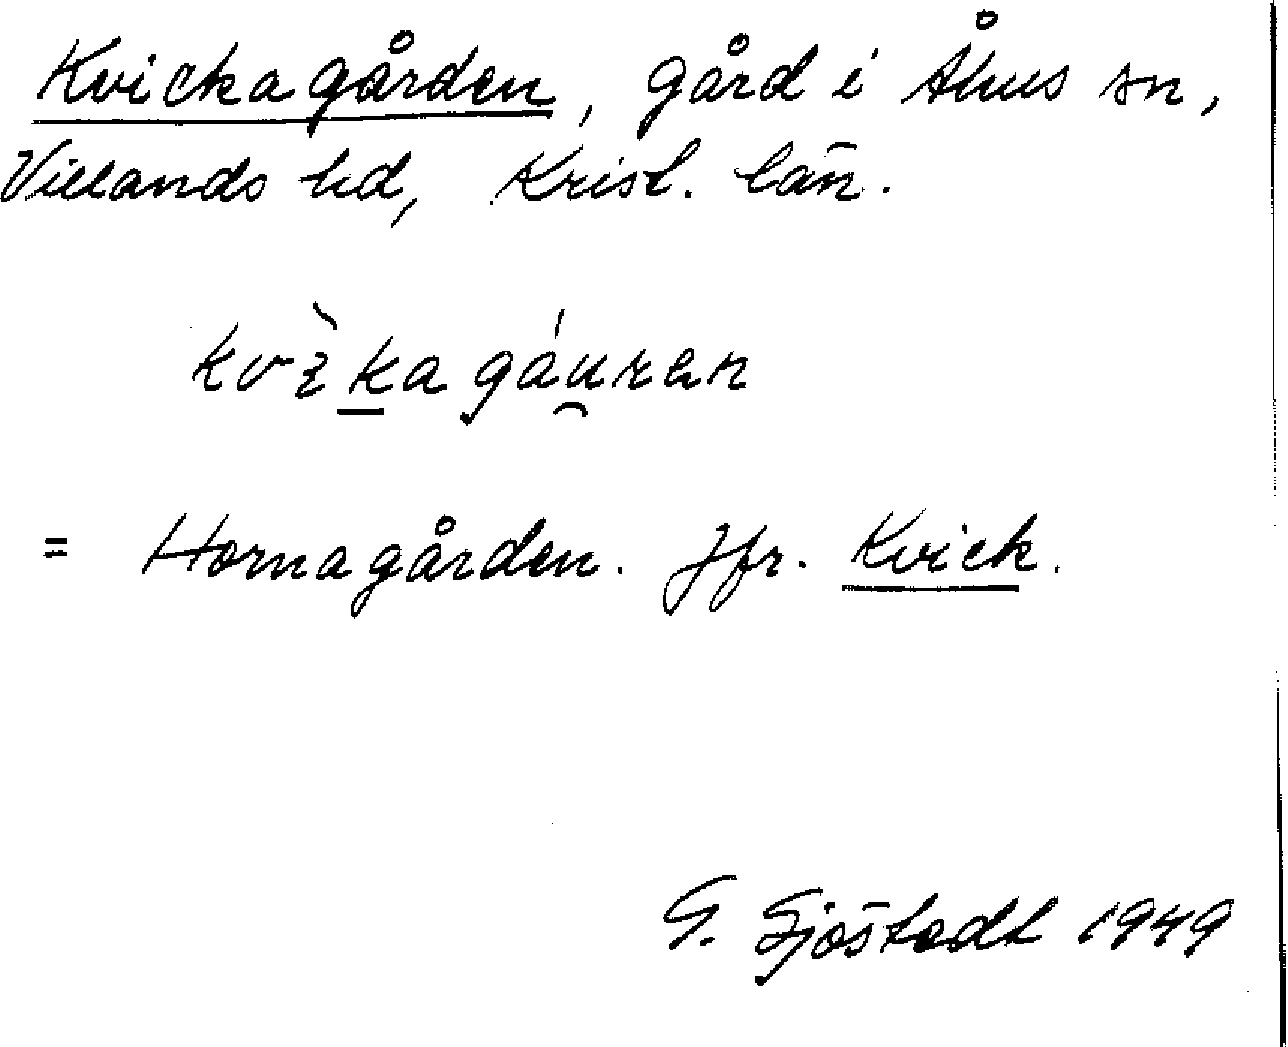 Kvickagården, gård i Åhus sn,
Villands hd, Krist. län.
kvìkagáu̯ran
= Hornagården. Jfr. Kvick.
G. Sjöstedt 1949